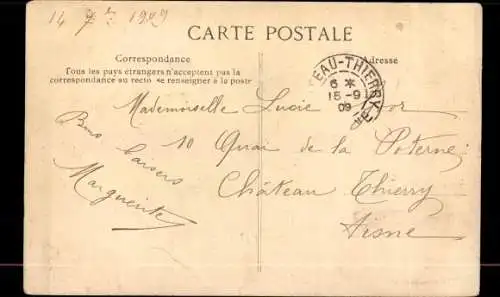 14 7re 1909
CARTE POSTALE
Correspondance
Tous les pays étrangers n'acceptent pas la
correspondance au recto (se renseigner à la poste)
Adresse
EAU-THIERRY
6 *
15-9
09
Mademoiselle Lucie
10 Quai de la Poterne
Château Thierry
Aisne
Bons baisers
Marguerite